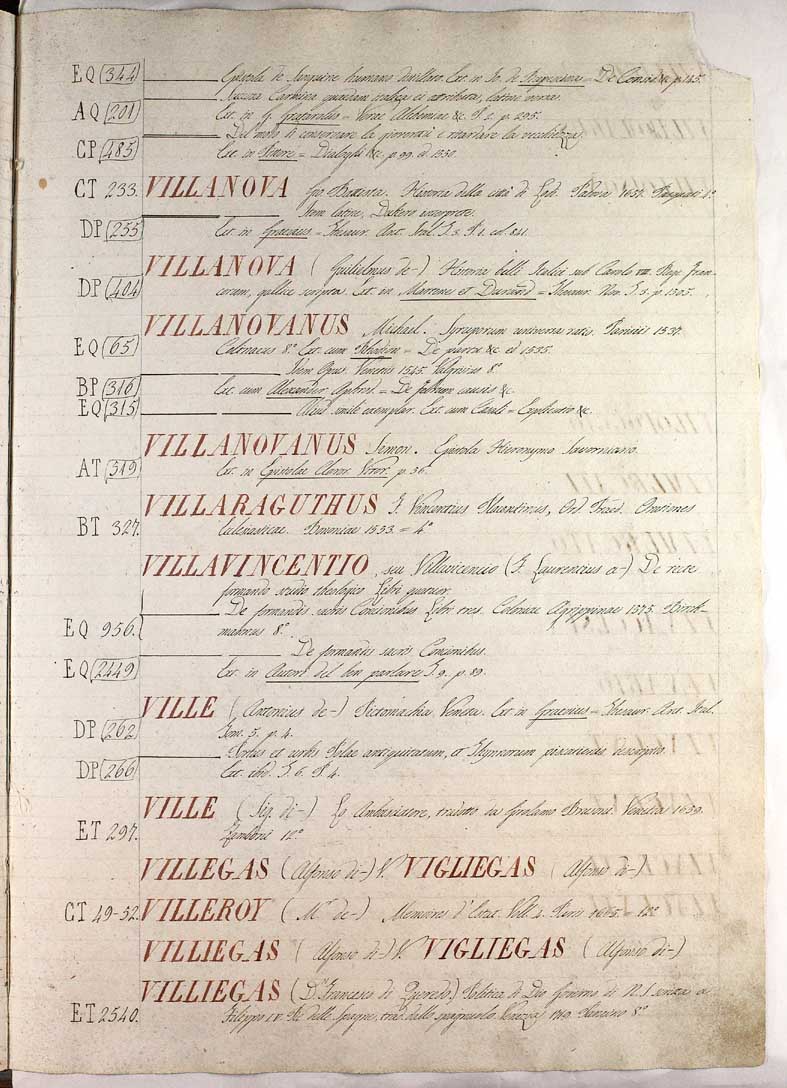 EQ 344 Epistola de Sanguine humano distillato. Ext. in Jo. de Rupescissa = De Consid. &c. p. 145.
Carmina quaedam italice ei attributa, latine versa.
AQ 201 Ext. in G. Gratarolus = Verae Alchemiae &c. T. 2. p. 295.
Del modo di conservare la gioventù e ritardare la vecchiezza.
CP 485 Ext. in = Dialoghi &c. p. 99. ed. 1550.
CT 233. VILLANOVA Gio. Historia della città di Lod. Padova 1657. Pasquati 4º
Item latine, interprete.
DP 255 Ext. in Graevius = Thesaur. Ant. Ital. T. 3. P. 1. col. 841.
VILLANOVA (Guilielmus de-) Historia belli Italici sub Carolo VIII. Rege Fran-
DP 404 corum, gallice scripta. Ext. in Martene et Durand = Thesaur. Nov. T. 3. p. 1505.
VILLANOVANUS Michael. Syruporum universa ratio. Parisiis 1537.
EQ 65 Colinaeus 8º. Ext. cum = De &c. ed. 1535.
Idem Opus. Venetiis 1545. Valgrisius 8º
BP 316 Ext. cum Alexander Aphrod. = De febrium causis &c.
EQ 315 Aliud simile exemplar. Ext. cum = Explicatio &c.
VILLANOVANUS Simon. Epistola Hieronymo Savorniano.
AT 319 Ext. in Epistolae Claror. Viror. p. 36.
VILLARAGUTHUS F. Vincentius Placentinus, Ord. Praed. Orationes
BT 327. Ecclesiasticae. Bononiae 1533. = 4º
VILLAVINCENTIO, seu Villavicencio (F. Laurencius a-) De recte
formando studio theologico Libri quatuor.
De formandis sacris Concionibus Libri tres. Coloniae Agrippinae 1575. Birck-
EQ 956. mannus 8º.
De formandis sacris Concionibus.
EQ 2449 Ext. in Autori del ben parlare T. 9. p. 89.
VILLE (Antonius de-) Pictomachia Veneta. Ext. in Graevius = Thesaur. Ant. Ital.
DP 262 Tom. 5. p. 4.
Portus et urbis Polae antiquitatum, et Thynnorum piscationis descriptio.
DP 266 Ext. ibid. T. 6. P. 4.
VILLE (Sig. di-) Lo Ambasciatore, tradotto da Girolamo Brusoni. Venetia 1639.
ET 297. 12º
VILLEGAS (Alfonso di-) V. VIGLIEGAS (Alfonso di-)
CT 49-52. VILLEROY (Mr. de-) Memoires d'Estat. Voll. 4. Paris 1665. = 12º
VILLIEGAS (Alfonso di-) V. VIGLIEGAS (Alfonso di-)
VILLIEGAS (D. Francesco di Quevedo) Politica di Dio Governo di N. S. scritta a
ET 2540. Filippo IV. Rè delle Spagne, trad. dallo spagnuolo. Venezia 1709. 8º